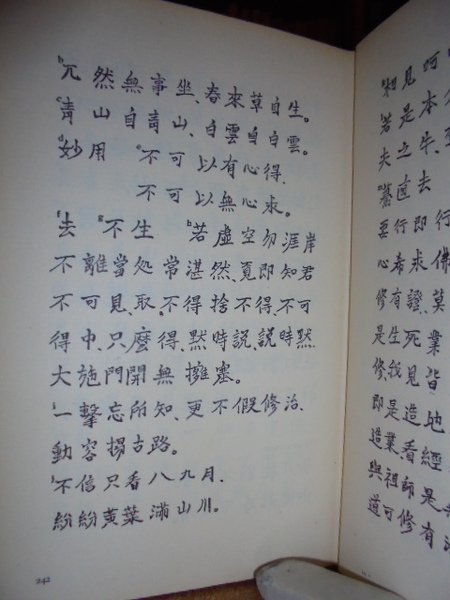 兀然無事坐、春來草自生。
青山自青山、白雲自白雲。
妙用 不可以有心得、
不可以無心求。
去 不生 若虛空勿涯岸
不離當処常湛然、覓即知君
不可見、取不得捨不得、不可
得中、只麼得、黙時説、説時黙
大施門開無擁塞。
一擊忘所知、更不假修治、
動容揚古路。
不信只看八九月、
紛紛黄葉滿山川。
242
相見呵
若是本
夫之牛、
驀直去
要行即行
心希求佛
修有證、莫
是生死業
修我見皆
即是造地
造業看經
與祖師是
道可修有